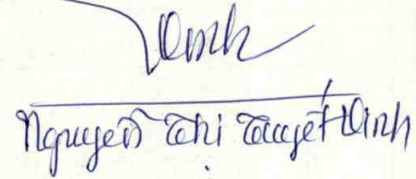 Vinh
Nguyễn Thị Tuyết Vinh